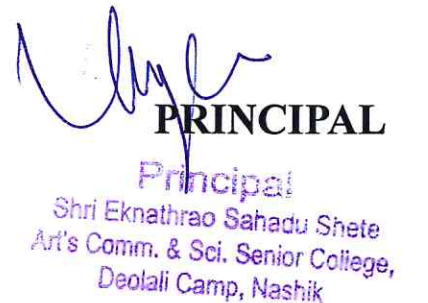 PRINCIPAL
Principal
Shri Eknathrao Sahadu Shete
Art's Comm. & Sci. Senior College,
Deolali Camp, Nashik